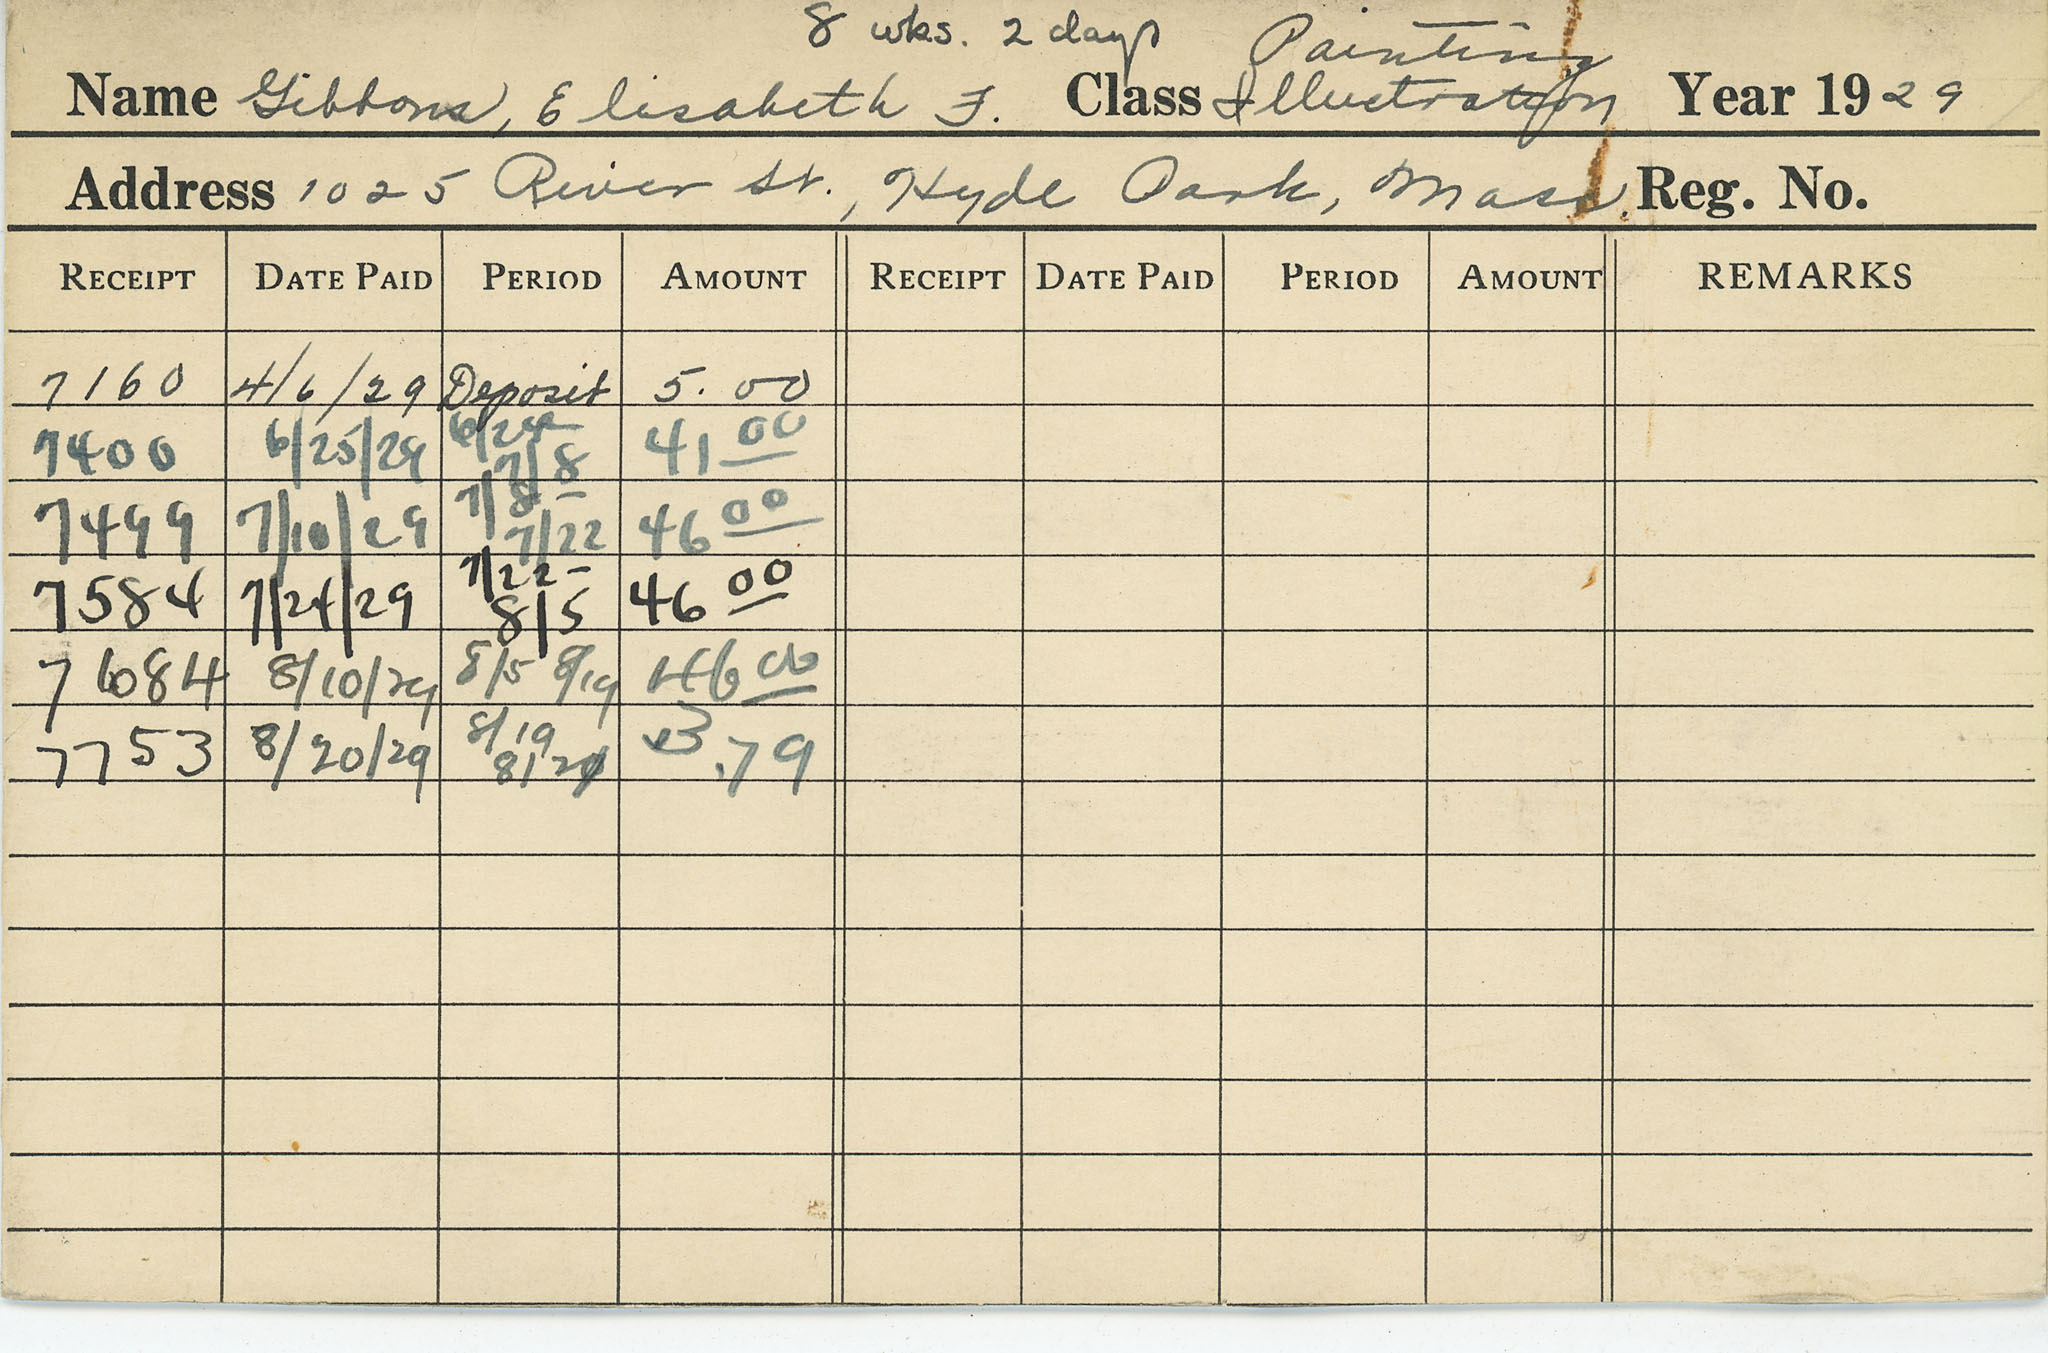 8 wks. 2 days Painting
Name Gibbons, Elisabeth F. Class Illustration Year 1929
Address 1025 River St., Hyde Park, Mass. Reg. No.
RECEIPT DATE PAID PERIOD AMOUNT RECEIPT DATE PAID PERIOD AMOUNT REMARKS
7160 4/6/29 Deposit 5.00
7400 6/25/29 6/24- 7/8 41 00
7499 7/10/29 7/8- 7/22 46 00
7584 7/24/29 7/22- 8/5 46 00
7684 8/10/29 8/5 8/19 46 00
7753 8/20/29 8/19 3.79